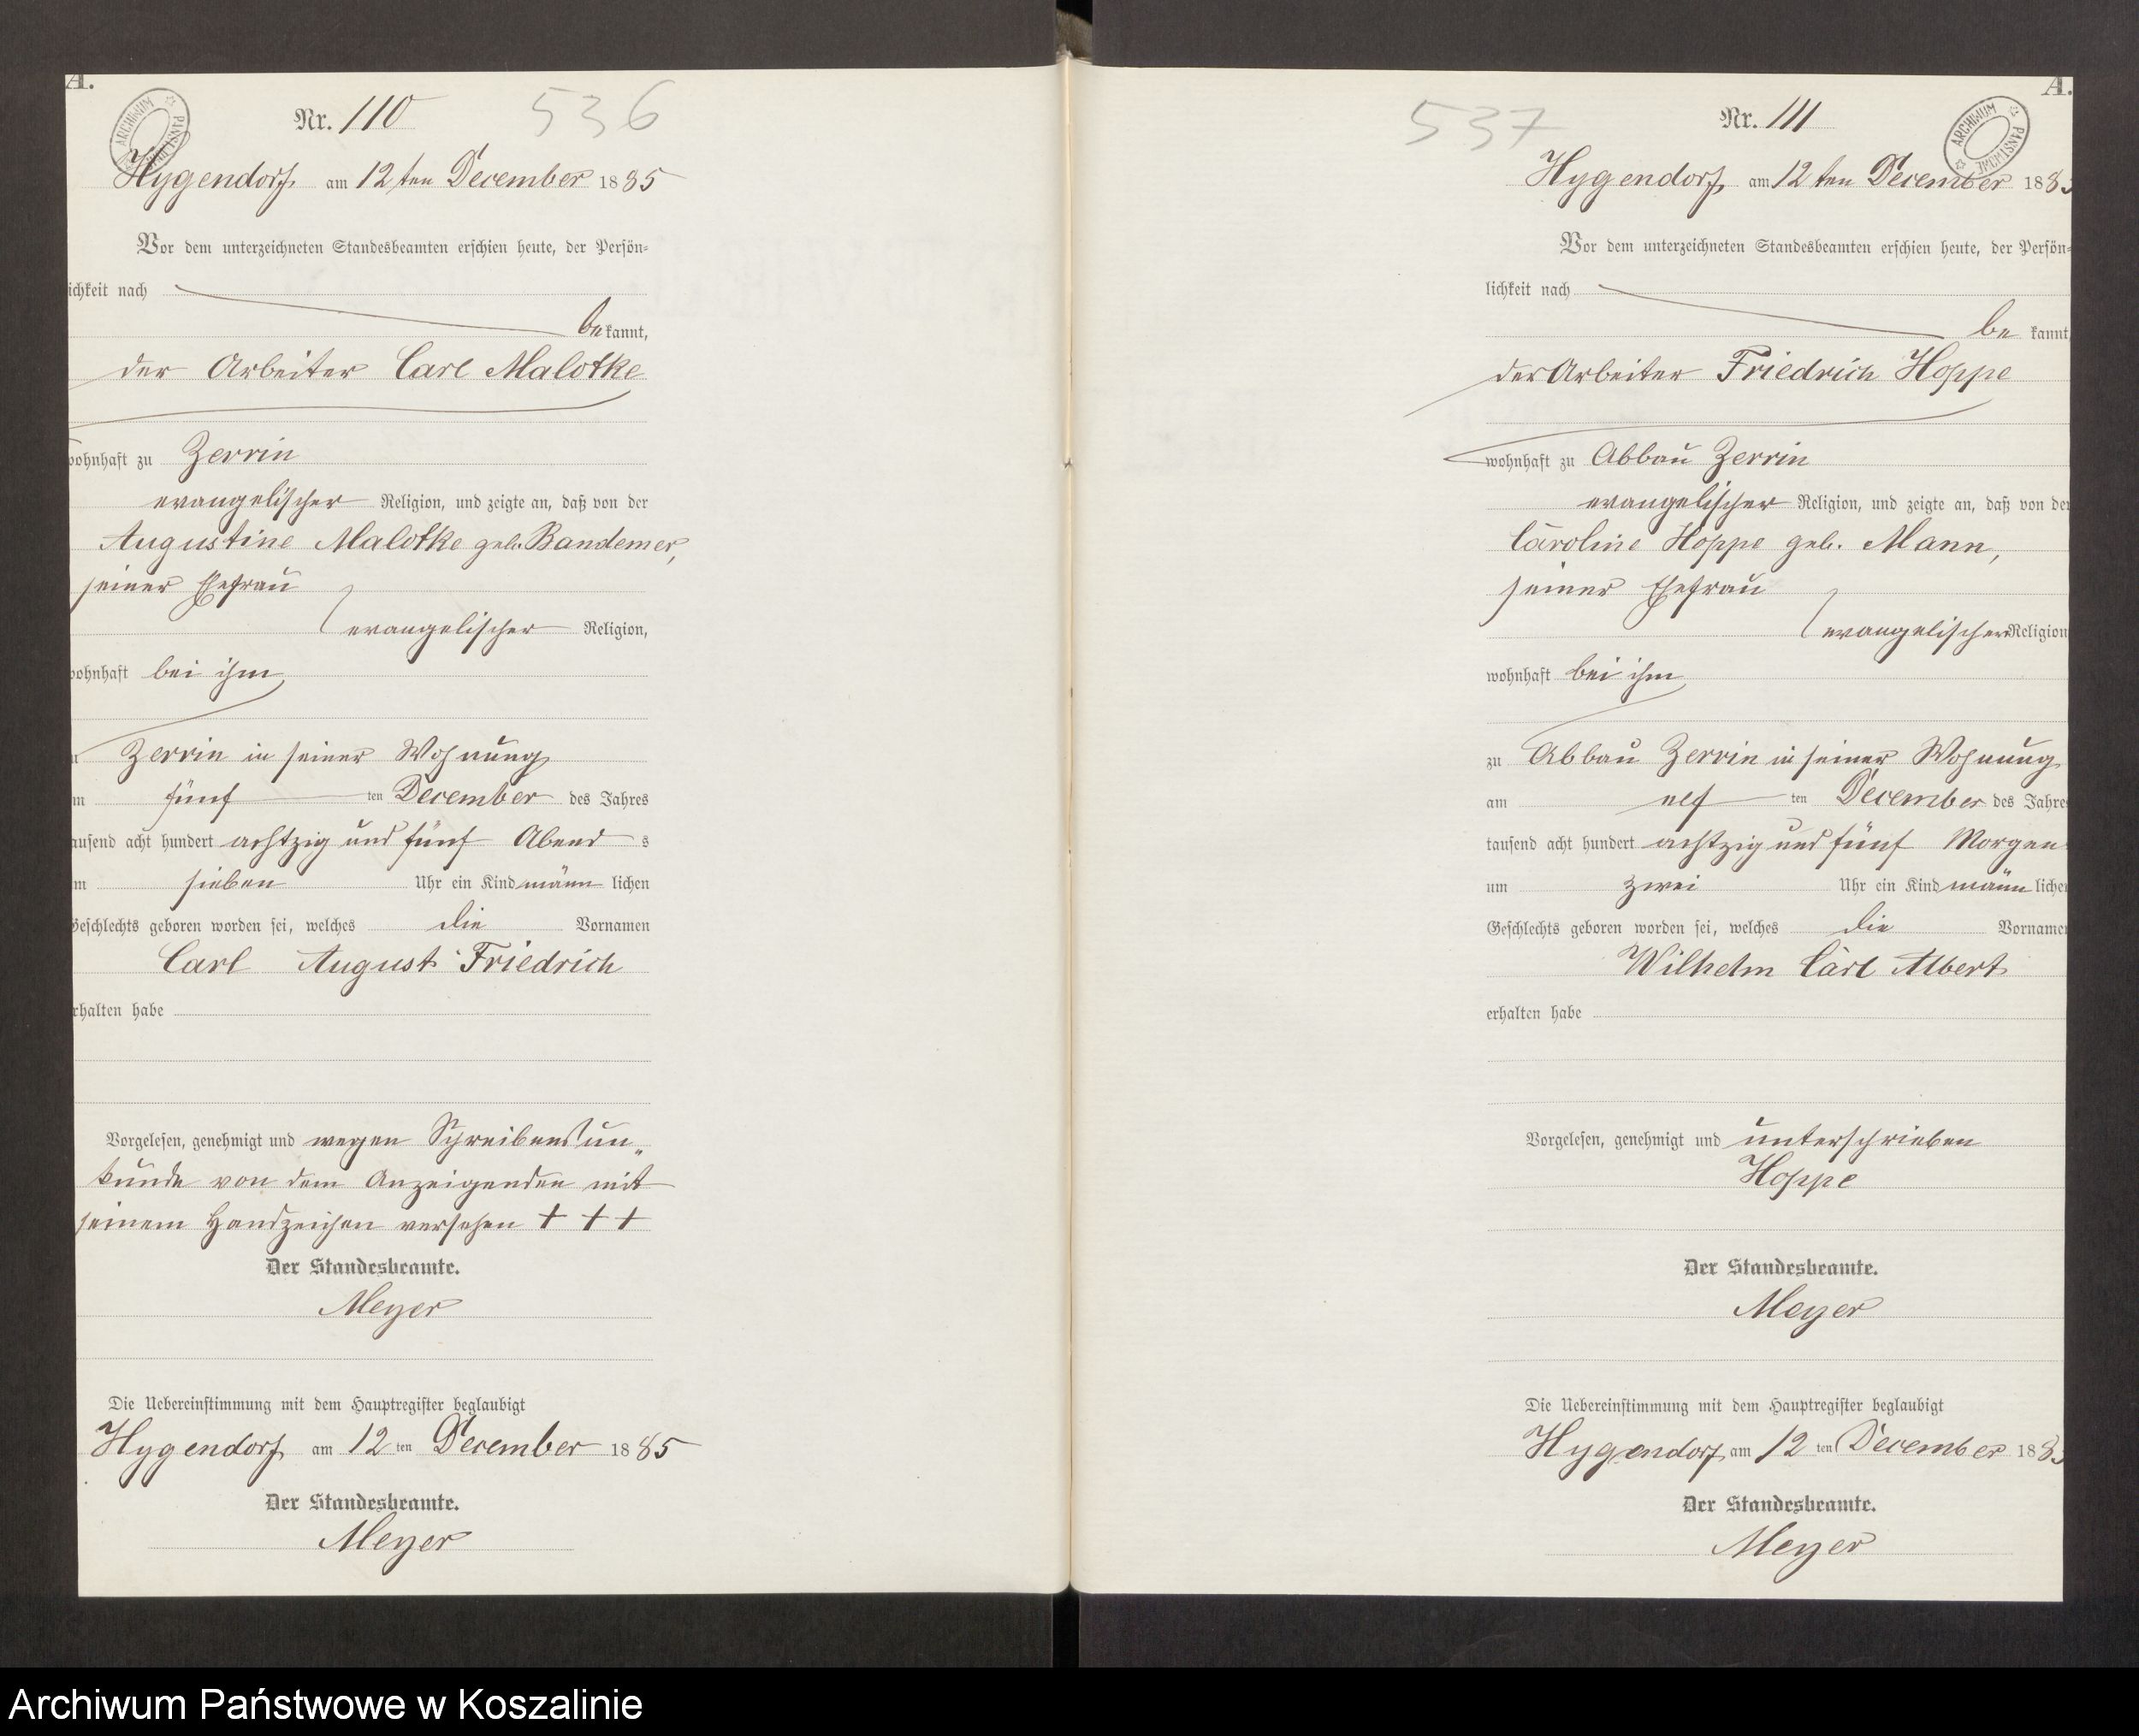 A.
Nr. 110
536
Hygendorf am 12ten December 1885
Vor dem unterzeichneten Standesbeamten erschien heute, der Persön-
ichkeit nach
be kannt,
der Arbeiter Carl Malotke
wohnhaft zu Zerrin
evangelischer Religion, und zeigte an, daß von der
Augustine Malotke geb. Bandemer,
seiner Ehefrau
evangelischer Religion,
wohnhaft bei ihm
Zerrin in seiner Wohnung
m fünf ten December des Jahres
ausend acht hundert achtzig und fünf Abend s
m sieben Uhr ein Kind männ lichen
Geschlechts geboren worden sei, welches die Vornamen
Carl August Friedrich
rhalten habe
Vorgelesen, genehmigt und wegen Schreibensun„
kunde von dem Anzeigenden mit
seinem Handzeichen versehen + + +
Der Standesbeamte.
Meyer
Die Uebereinstimmung mit dem Hauptregister beglaubigt
Hygendorf am 12 ten December 1885
Der Standesbeamte.
Meyer
A.
537
Nr. 111
ARCHIWUM PAŃSTWOWE
Hygendorf am 12ten December 188
Vor dem unterzeichneten Standesbeamten erschien heute, der Persön-
lichkeit nach
be kannt
der Arbeiter Friedrich Hoppe
wohnhaft zu Abbau Zerrin
evangelischer Religion, und zeigte an, daß von der
Caroline Hoppe geb. Mann,
seiner Ehefrau
evangelischer Religion
wohnhaft bei ihm
zu Abbau Zerrin in seiner Wohnung
am elf ten December des Jahre
tausend acht hundert achtzig und fünf Morgen
um zwei Uhr ein Kind männ liche
Geschlechts geboren worden sei, welches die Vorname
Wilhelm Carl Albert
erhalten habe
Vorgelesen, genehmigt und unterschrieben
Hoppe
Der Standesbeamte.
Meyer
Die Uebereinstimmung mit dem Hauptregister beglaubigt
Hygendorf am 12 ten December 188
Der Standesbeamte.
Meyer
Archiwum Państwowe w Koszalinie